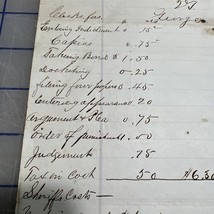 Clerks fees
Entering Indictment .15
Capias 0.75
Taking Bond $1.50
Docketing 0-25
Filing four papers 0.45
Entering appearance 0.20
argument & Plea 0.75
order of punishment 1.50
Judgement .75
Tax on Cost 50 $6.30
Sheriffs Costs —